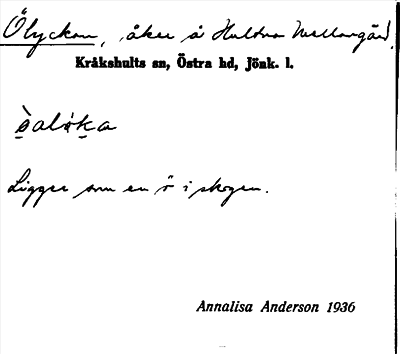 Ölyckan, åker å Hultna Mellangård,
Kråkshults sn, Östra hd, Jönk. l.
Ligger som en ö i skogen.
Annalisa Anderson 1936